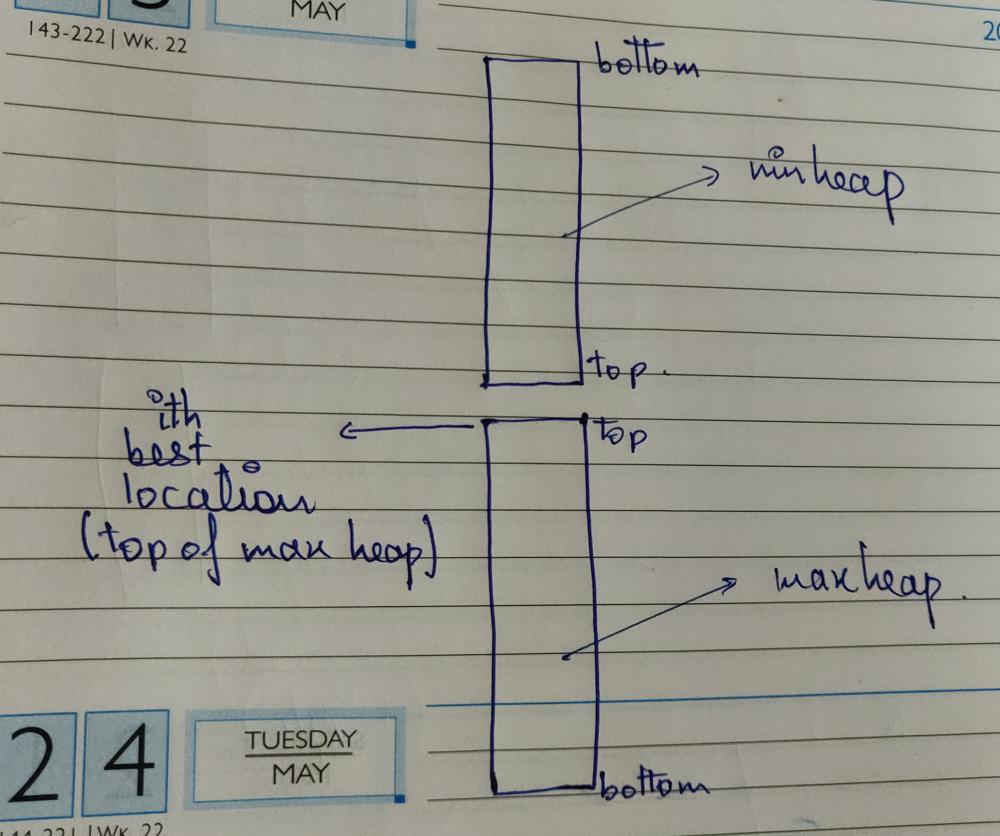 MAY
143-222 | WK. 22
bottom
min heap
top.
ith
best
location
(top of max heap)
top
max heap.
24
TUESDAY
MAY
bottom
WK. 22